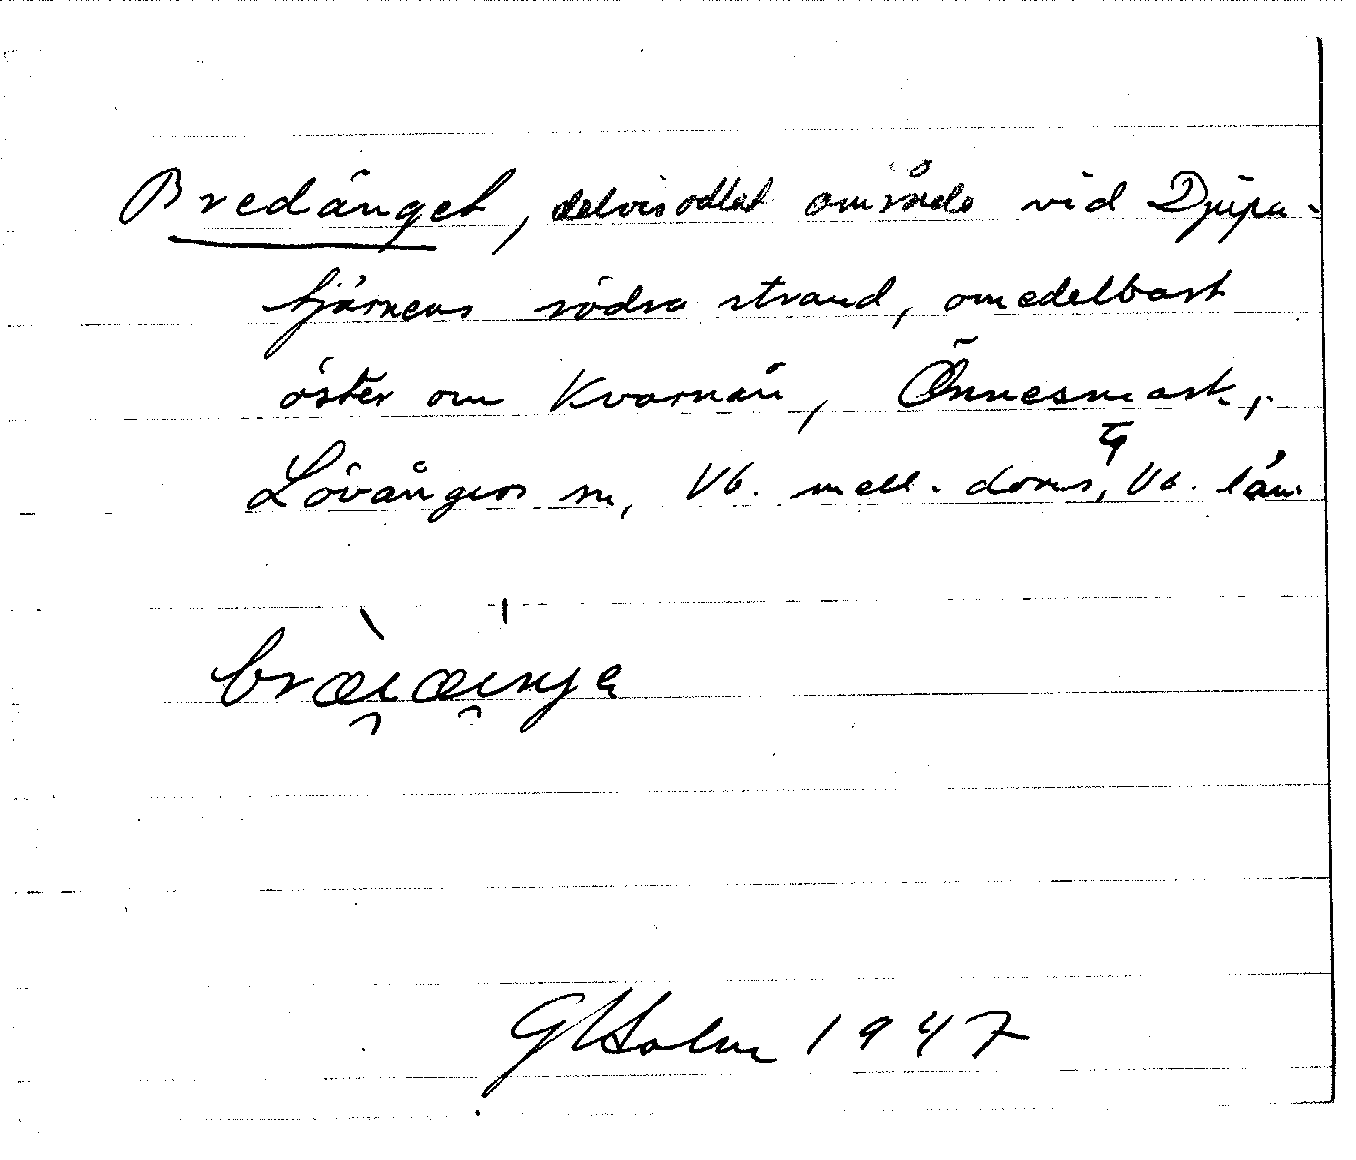 Bredänget, delvis odlat område vid Djupa-
tjärnens södra strand, omedelbart
öster om Kvarnån, Önnesmark,
Lövångers sn, Vb. mell. doms. tg, Vb. län.
bræiæinjə
G Holm 1947